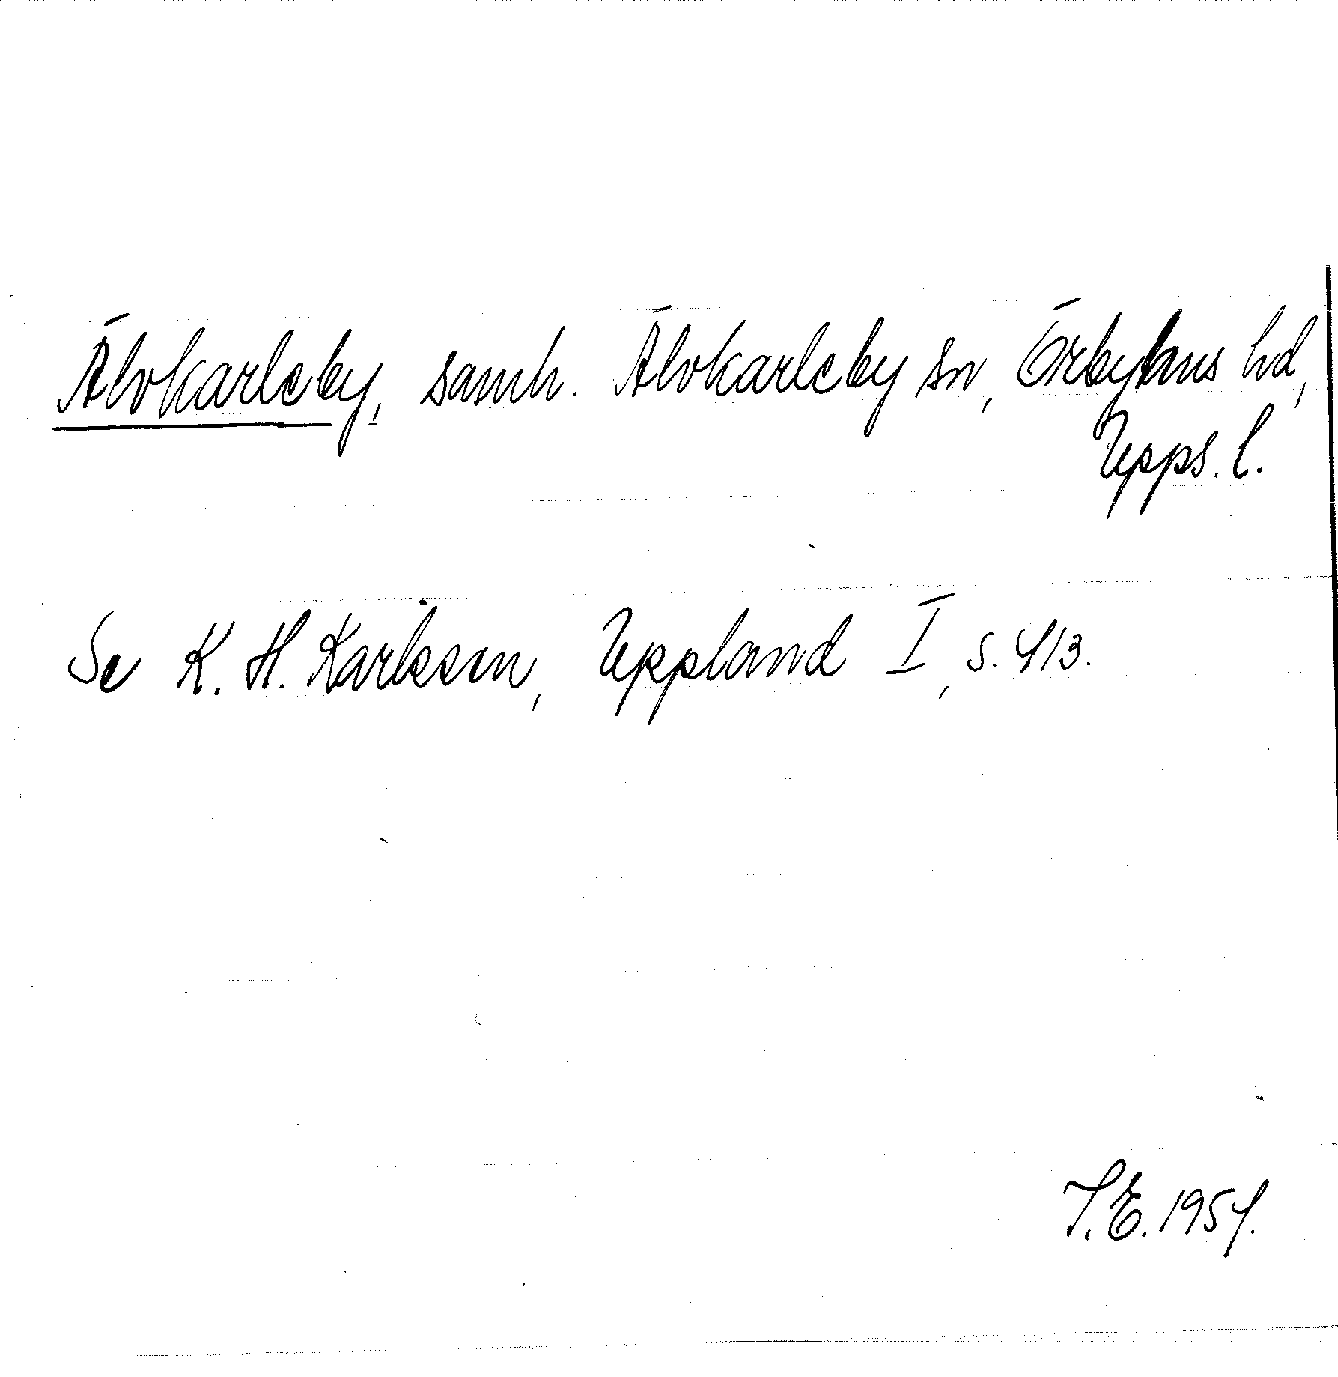 Älvkarleby, samh. Älvkarleby sn, Örbyhus hd,
Upps. l.
Se K. H. Karlsson, Uppland I, s. 413.
I. E. 1954.